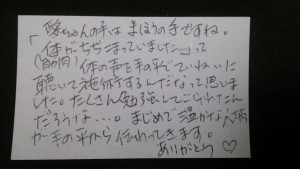 「愛ちゃんの手は まほうの手ですね。
体がちぢこまっていました…」って
(筋肉)体の声を手の平でていねいに
聴いて施術するんだなって思いま
した。たくさん勉強してこられたん
だろうな…。まじめで温かな人柄
が手の平から伝わってきます。
ありがとう♡